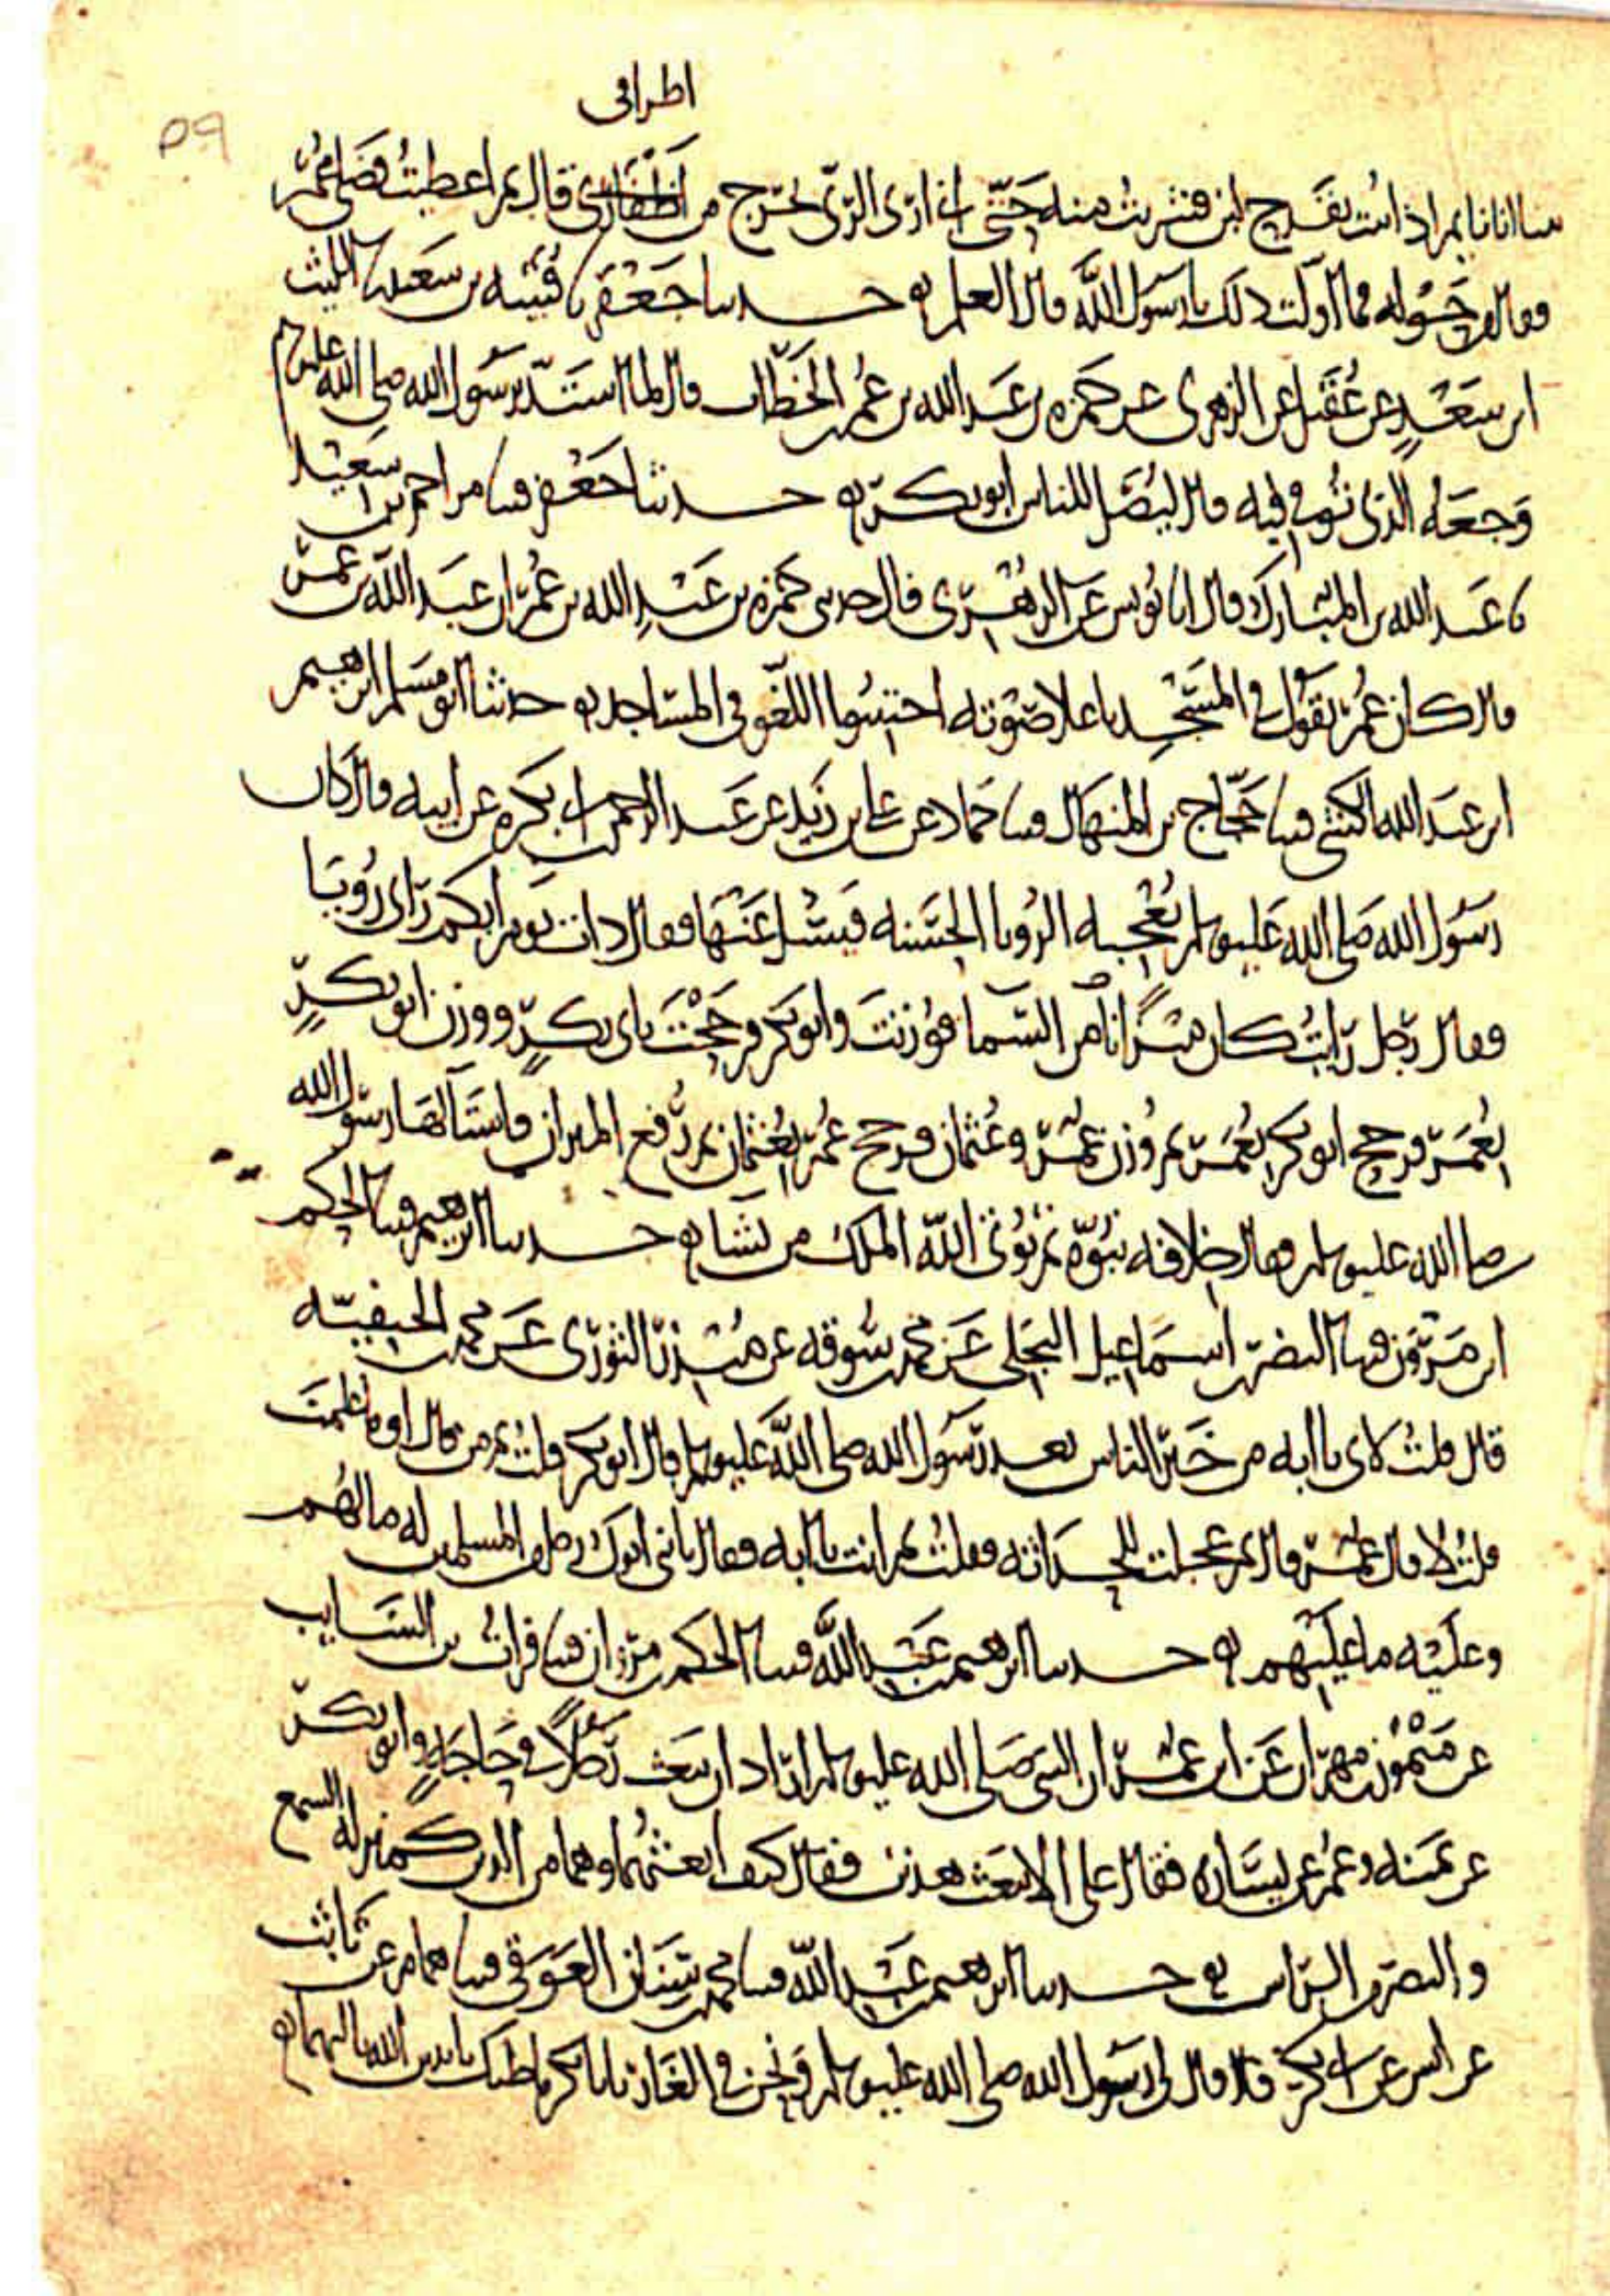 اطرافي
٥٩
بينا انا نايم اذ اتيت بقدح لبن فشربت منه حتى اني ارى الري يخرج من اظفاري قال ثم اعطيت فضلي عمر
فقال من حوله فما اولت ذلك يا رسول الله قال العلم حدثنا جعفر نا قتيبه بن سعيد نا الليث
ابن سعد عن عقيل عن الزهري عن حمزه بن عبد الله بن عمر بن الخطاب قال لما اشتد برسول الله صلى الله عليه وسلم
وجعه الذي توفي فيه قال ليصل للناس ابو بكر حدثنا جعفر قثنا مزاحم بن سعيد
نا عبد الله بن المبارك قال انا يونس عن الزهري قال حدثني حمزه بن عبد الله بن عمر ان عبد الله بن عمر
قال كان عمر يقول في المسجد باعلا صوته اجتنبوا اللغو في المساجد حدثنا ابو مسلم ابرهيم
ابن عبد الله الكشي قثنا حجاج بن المنهال قثنا حماد عن علي بن زيد عن عبد الرحمن بن ابي بكره عن ابيه قال كان
رسول الله صلى الله عليه وسلم تعجبه الرويا الحسنه فيسل عنها فقال ذات يوم ايكم راى رويا
فقال رجل رايت كان ميزانا من السما فوزنت وابو بكر فرجحت بابي بكر ووزن ابو بكر
بعمر فرجح ابو بكر بعمر ثم وزن عمر وعثمان فرجح عمر بعثمان ثم رفع الميزان فاستآلها رسول الله
صلى الله عليه وسلم فقال خلافه نبوه ثم يوتي الله الملك من يشا حدثنا ابرهيم قثنا الحكم
ابن مروان قثنا النضر بن اسماعيل البجلي عن محمد بن سوقه عن منذر الثوري عن محمد بن الحنفيه
قال قلت لابي يا ابه من خير الناس بعد رسول الله صلى الله عليه وسلم قال ابو بكر قلت ثم من قال اوما تعلمت
قلت لا قال عمر قال ثم عجلت للحداثه فقلت ثم انت يا ابه فقال يا بني ابوك رجل من المسلمين له ما لهم
وعليه ما عليهم حدثنا ابرهيم بن عبد الله قثنا الحكم بن مروان قثنا فرات بن السايب
عن ميمون بن مهران عن ابن عمر ان النبي صلى الله عليه وسلم اراد ان يبعث رجلا في حاجه وابو بكر
عن يمينه وعمر عن يساره فقال علي الا تبعث هذين فقال كيف ابعثهما وهما من الدين كمنزله السمع
والبصر من الراس حدثنا ابرهيم بن عبد الله قثنا محمد بن سنان العوقي قثنا همام عن ثابت
عن انس عن ابي بكر قال قال لي رسول الله صلى الله عليه وسلم ونحن في الغار يا ابا بكر ما ظنك باثنين الله ثالثهما